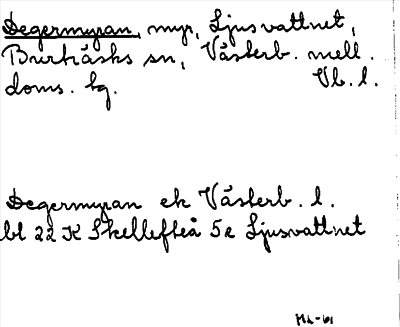 Degermyran, myr, Ljusvattnet,
Burträsks sn, Västerb. mell.
doms. hg. Vb. l.
Degermyran ek Västerb. l.
bl 22 K Skellefteå 5a Ljusvattnet